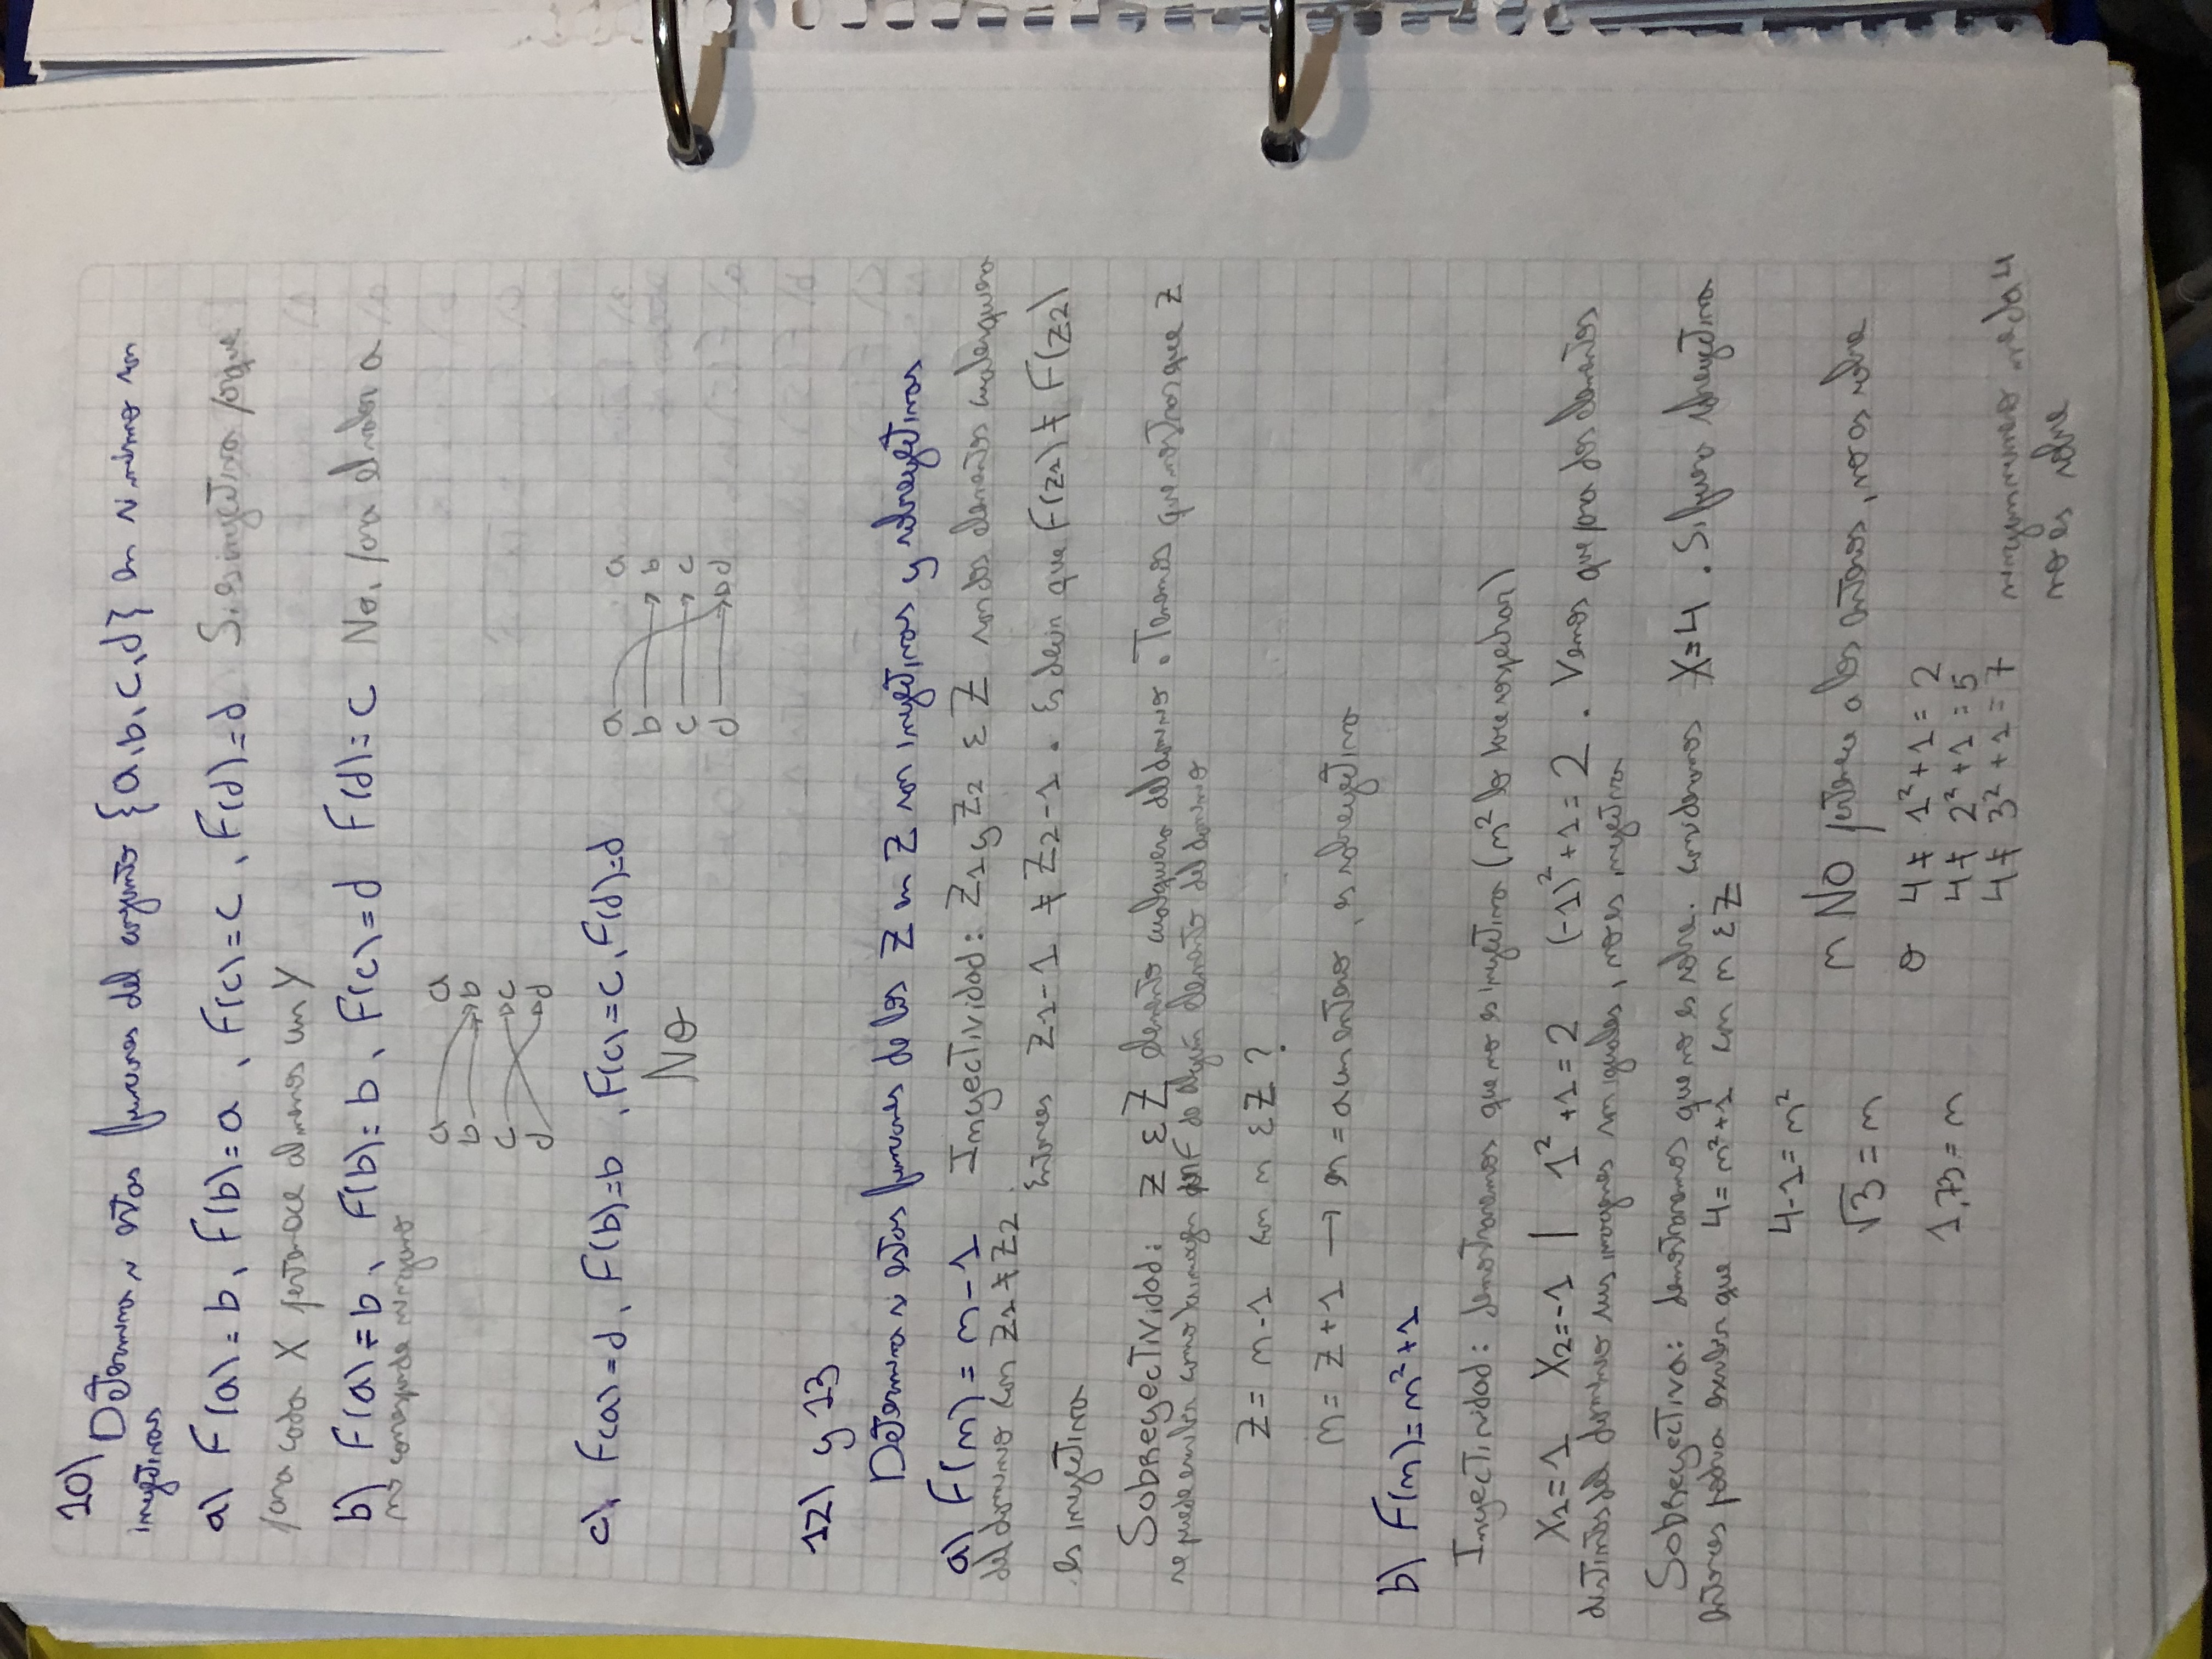 10)
Determina si estas funciones del conjunto {a,b,c,d} en si mismo son
inyectivas
a) F(a)=b, F(b)=a, F(c)=c, F(d)=d Si es inyectiva porque
para cada X pertenece al menos un Y
b) F(a)=b, F(b)=b, F(c)=d F(d)=c No, para el valor a
no corresponde ninguno
a a
b b
c c
d d
c) F(a)=d, F(b)=b, F(c)=c, F(d)=d
No
a a
b b
c c
d d
12) y 13
Determina si estas funciones de los Z en Z son inyectivas y sobreyectivas
a) F(n)=n-1 Inyectividad: Z1 y Z2 ε Z son dos elementos cualesquiera
del dominio con Z1≠Z2.
Entonces Z1-1 ≠ Z2-1. Es decir que F(Z1)≠F(Z2)
es inyectiva
Sobreyectividad: Z ε Z elemento cualquiera del dominio. Tenemos que mostrar que Z
se puede escribir como la imagen por F de algún elemento del dominio
Z= n-1 con n ε Z?
n= Z+1 → n = a un entero, es sobreyectiva
b) F(n)=n²+1
Inyectividad: demostraremos que no es inyectiva (n² lo hace sospechar)
X1=1 X2=-1 | 1²+1=2 (-1)²+1=2. Vemos que para dos elementos
distintos del dominio sus imagenes son iguales, no es inyectiva
Sobreyectiva: demostraremos que no es sobre. consideramos X=4. Si fuera sobreyectiva
entonces podria escribir que 4=n²+1 con n ε Z
4-1=n²
√3=n
1,73=n
n NO pertenece a los enteros, no es sobre
o 4≠ 1²+1=2
4≠ 2²+1=5
4≠ 3²+1=7
ningun numero me da 4
no es sobre